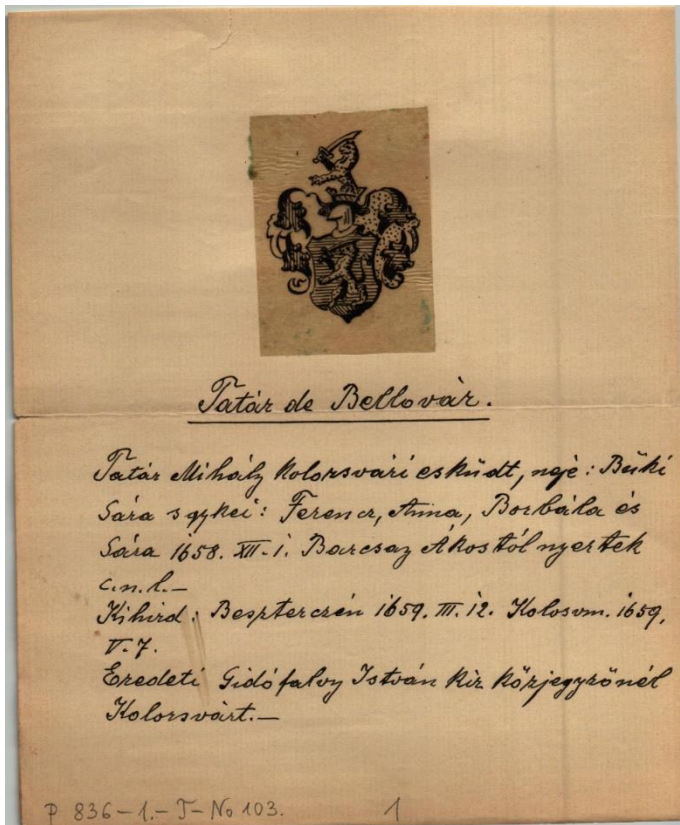 Tatár de Bellovár.
Tatár Mihály kolozsvári esküdt, neje: Büki
Sára s gykei: Ferencz, Anna, Borbála és
Sára 1658. XII. 1. Barcsay Ákostól nyertek
c.n.l.—
Kihird: Beszterczén 1659. III. 12. Kolosvm. 1659.
V. 7.
Eredeti Gidófalvy István kir. közjegyzőnél
Kolozsvárt.—
P 836-1.-T-No 103. 1